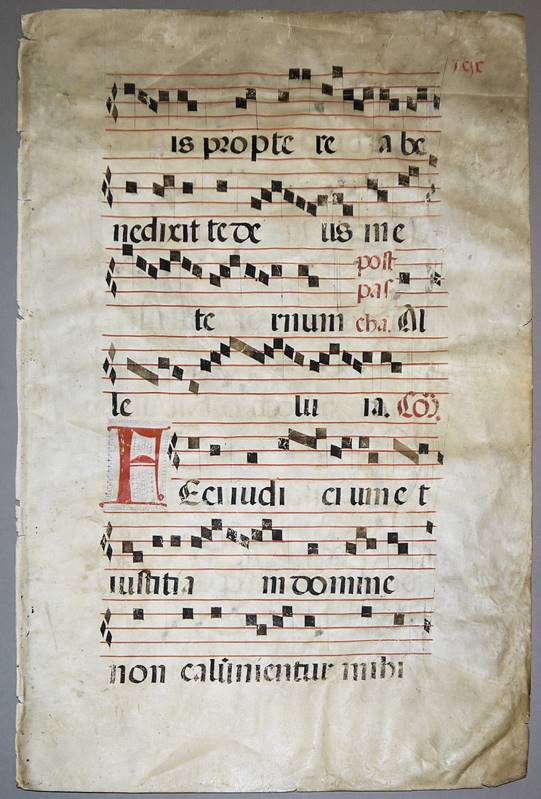 is propte re a be
nedixit te de us in e
post
pas
te rnum cha. Al
le lu ia. Cõ.
FEci iudi ci um e t
iustitia m domine
non calũnientur mihi